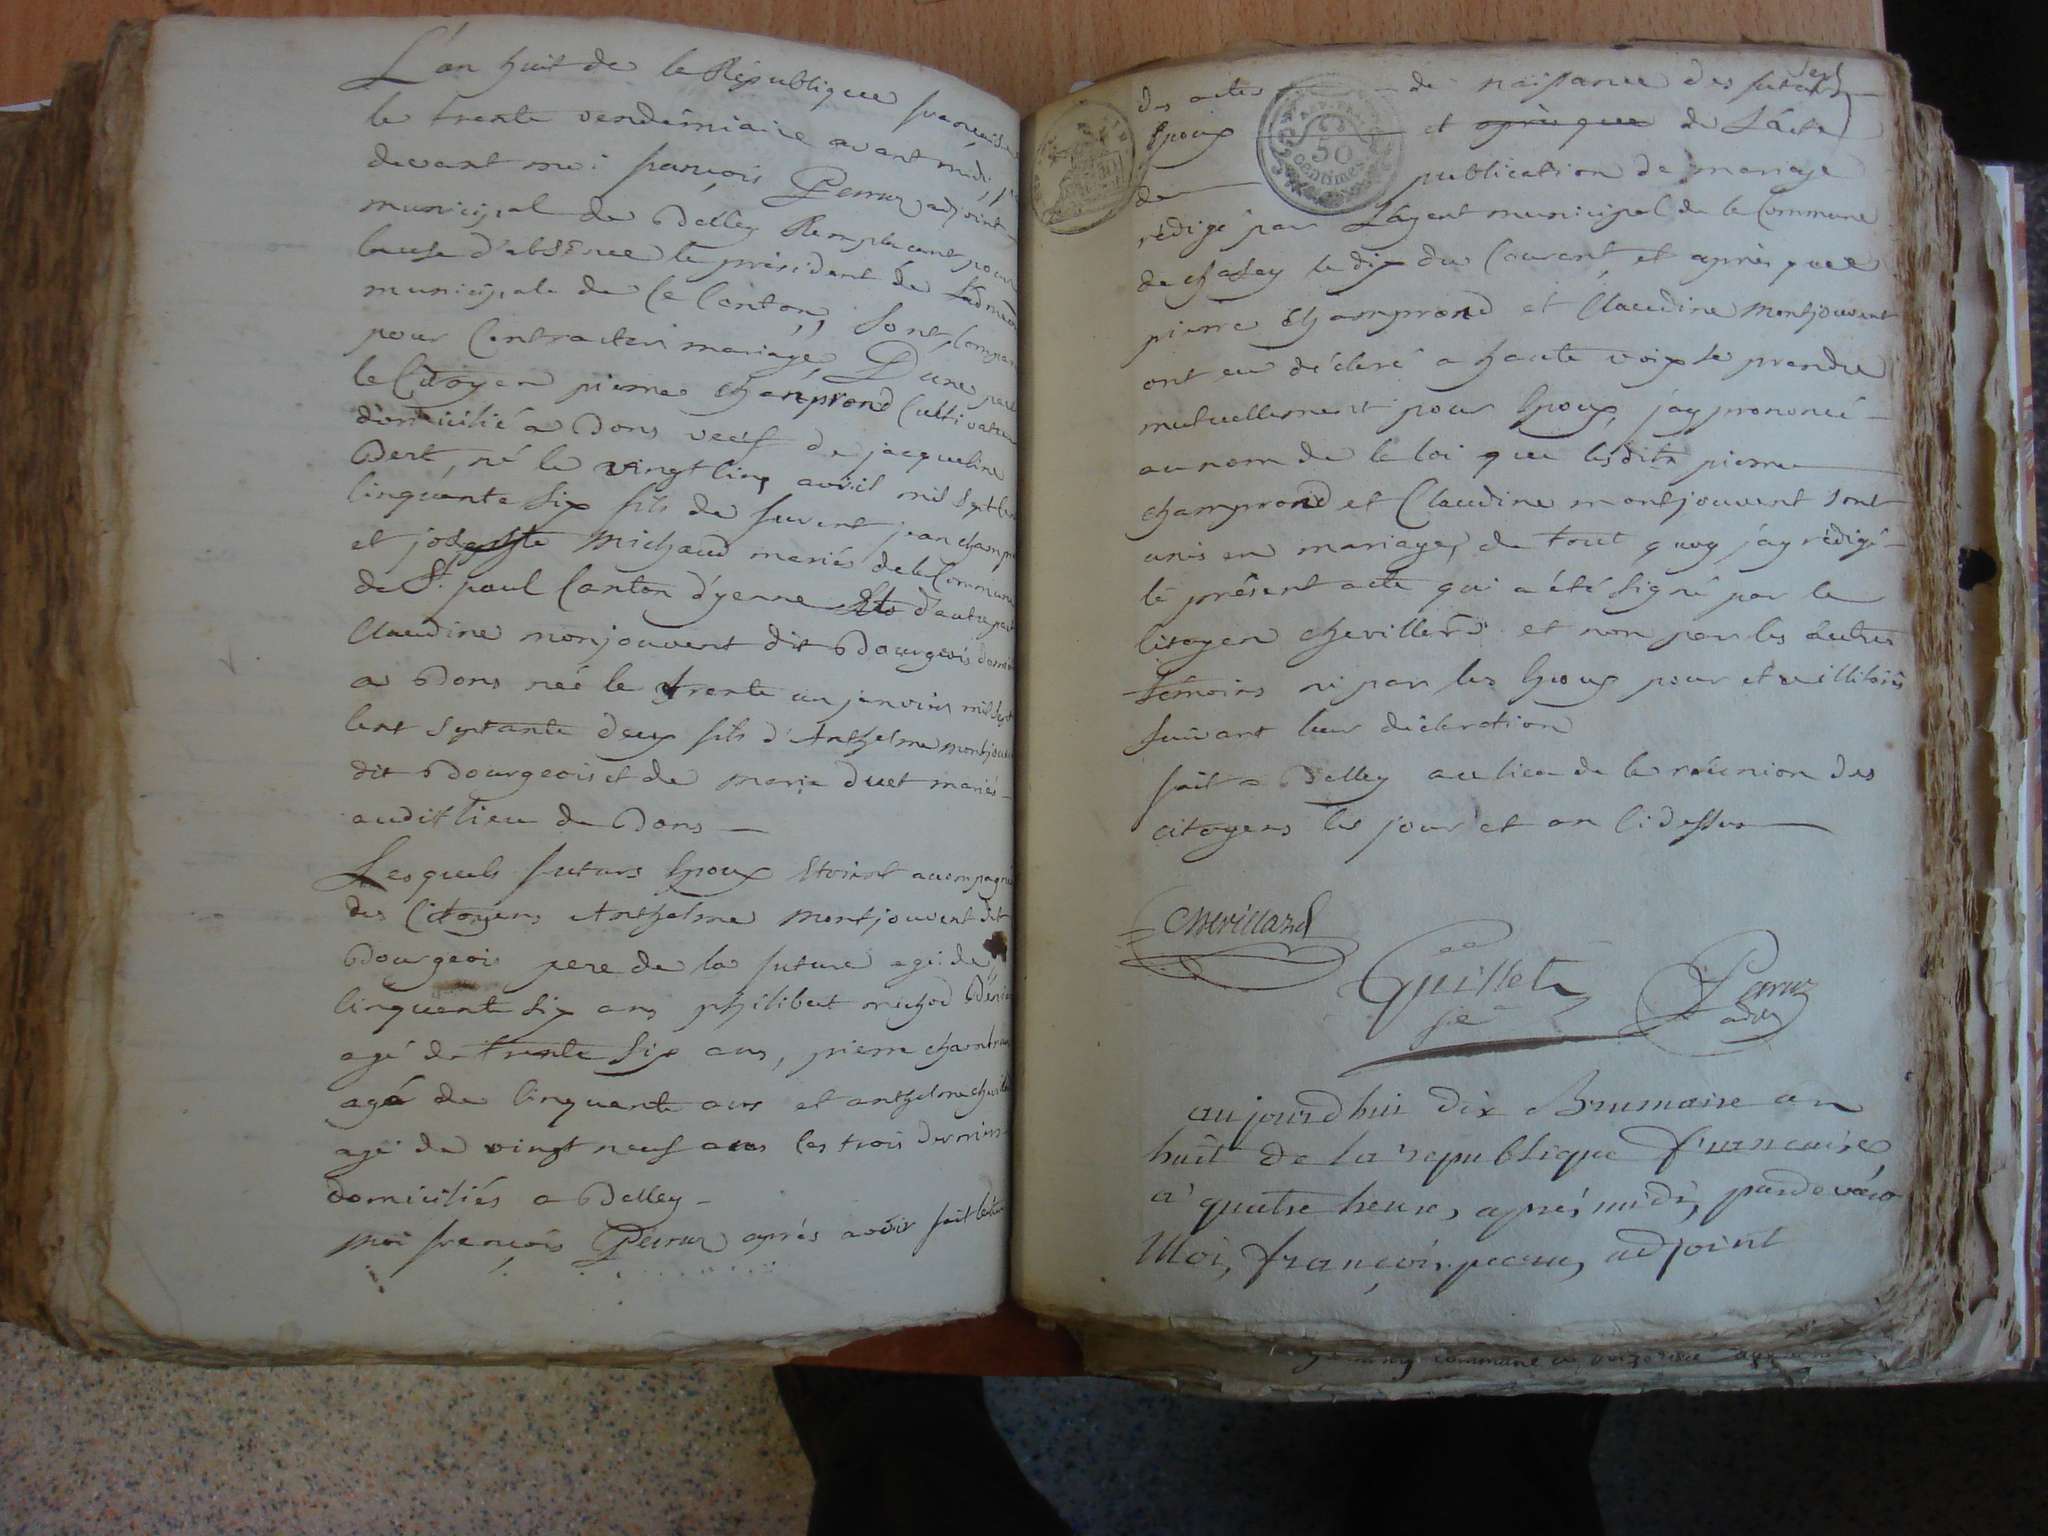 L'an huit de la République francaise
le trente vendémiaire avant midi,
devant moi françois Perruz adjoint
municipal de Belley Remplacant pour
Cause d'absence le président de L'adm
municipale de Ce Canton, Sont Compar
pour Contracter mariage, D'une part
le Citoyen pierre champrond Cultivateur
domicilié a Bons veuf de jacqueline
Bert, né le vingt cinq avril mil Sept Cen
Cinquante Six fils de furent jean champr
et Michaud mariés de la Commune
de St paul Canton d'yenne d'autre part
Claudine monjouvent dit Bourgeois domi
a Bons neé le trente un janvier mil Sept
Cent Septante deux fils d'Anthelme montjou
dit Bourgeois et de marie duet mariés
audit lieu de Bons
Lesquels futurs Epoux Etoient accompagné
des Citoyens Anthelme montjouvent dit
Bourgeois pere de la future agé de
Cinquante Six ans philibert michod
agé de trente Six ans, pierre
agé de Cinquante ans et anthelme
agé de vingt neuf ans les trois derniers
domiciliés a Belley
Moi françois Perruz après avoir fait
des actes de naissance des futurs
Epoux et après que de L'acte
de publication de mariage
rédigé par L'agent municipal de la Commune
de chaley le dix du Courant et après que
pierre champrond et Claudine montjouvent
ont eu déclaré a haute voix se prendre
mutuellement pour Epoux, j'ay prononcé
au nom de la loi que lesdits pierre
champrond et Claudine montjouvent sont
unis en mariage, de tout quoy j'ay rédigé
le présent acte qui a été Signé par le
Citoyen et non par les autres
témoins ni par les Epoux pour etre illitérés
Suivant leur déclaration
fait a Belley au lieu de la réunion des
citoyens les jour et an Cidessus
Chevillard
Guillot Perruz
Se adjt
aujourdhui dix Brumaire an
huit de la republique francaise
a quatre heures, aprés midi, pardevant
Moi, françois perruz, adjoint
50
Centimes